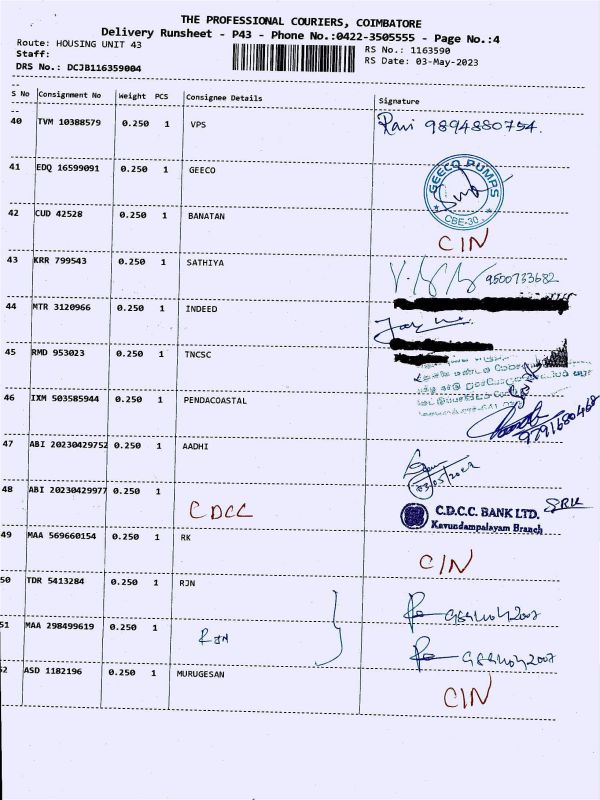 THE PROFESSIONAL COURIERS, COIMBATORE
Delivery Runsheet - P43 - Phone No.:0422-3505555 - Page No.:4
Route: HOUSING UNIT 43
RS No.: 1163590
Staff:
RS Date: 03-May-2023
DRS No.: DCJB116359004
S No Consignment No Weight PCS Consignee Details Signature
40 TVM 10388579 0.250 1 VPS Ravi 9894880754.
41 EDQ 16599091 0.250 1 GEECO
GEECO PUMPS
CBE-30
42 CUD 42528 0.250 1 BANATAN CIN
43 KRR 799543 0.250 1 SATHIYA 9500733682
44 MTR 3120966 0.250 1 INDEED
45 RMD 953023 0.250 1 TNCSC
46 IXM 503585944 0.250 1 PENDACOASTAL 9791680468
47 ABI 20230429752 0.250 1 AADHI
03/05/2023
48 ABI 20230429977 0.250 1 CDCC
C.D.C.C. BANK LTD.
Kavundampalayam Branch
49 MAA 569660154 0.250 1 RK CIN
50 TDR 5413284 0.250 1 RJN
51 MAA 298499619 0.250 1 RJN
52 ASD 1182196 0.250 1 MURUGESAN CIN